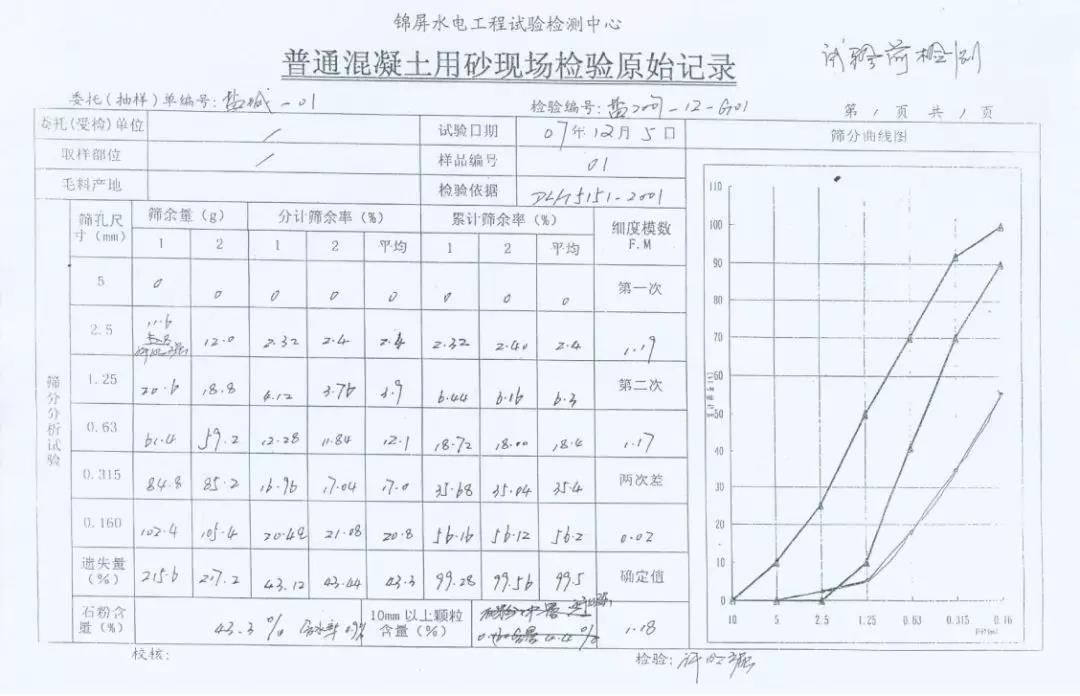 锦屏水电工程试验检测中心
普通混凝土用砂现场检验原始记录
试验前检测
委托(抽样)单编号: 盐城-01 检验编号: 盐2007-12-G01 第 1 页 共 1 页
委托(受检)单位 / 试验日期 07年12月5日 筛分曲线图
取样部位 / 样品编号 01
毛料产地 检验依据 DL/T5151-2001
筛分分析试验
筛孔尺寸(mm) 筛余量(g) 分计筛余率(%) 累计筛余率(%) 细度模数F.M
1 2 1 2 平均 1 2 平均
5 0 0 0 0 0 0 0 0 第一次
2.5 11.6 12.0 2.32 2.4 2.4 2.32 2.40 2.4 1.19
1.25 20.6 18.8 4.12 3.76 3.9 6.44 6.16 6.3 第二次
0.63 61.4 59.2 12.28 11.84 12.1 18.72 18.00 18.4 1.17
0.315 84.8 85.2 16.96 17.04 17.0 35.68 35.04 35.4 两次差
0.160 102.4 105.4 20.48 21.08 20.8 56.16 56.12 56.2 0.02
遗失量(%) 215.6 217.2 43.12 43.44 43.3 99.28 99.56 99.5 确定值
石粉含量(%) 43.3% 含水率 10mm以上颗粒含量(%) 1.18
校核: 检验:
110
100
90
80
70
60
50
40
30
20
10
0
10 5 2.5 1.25 0.63 0.315 0.16